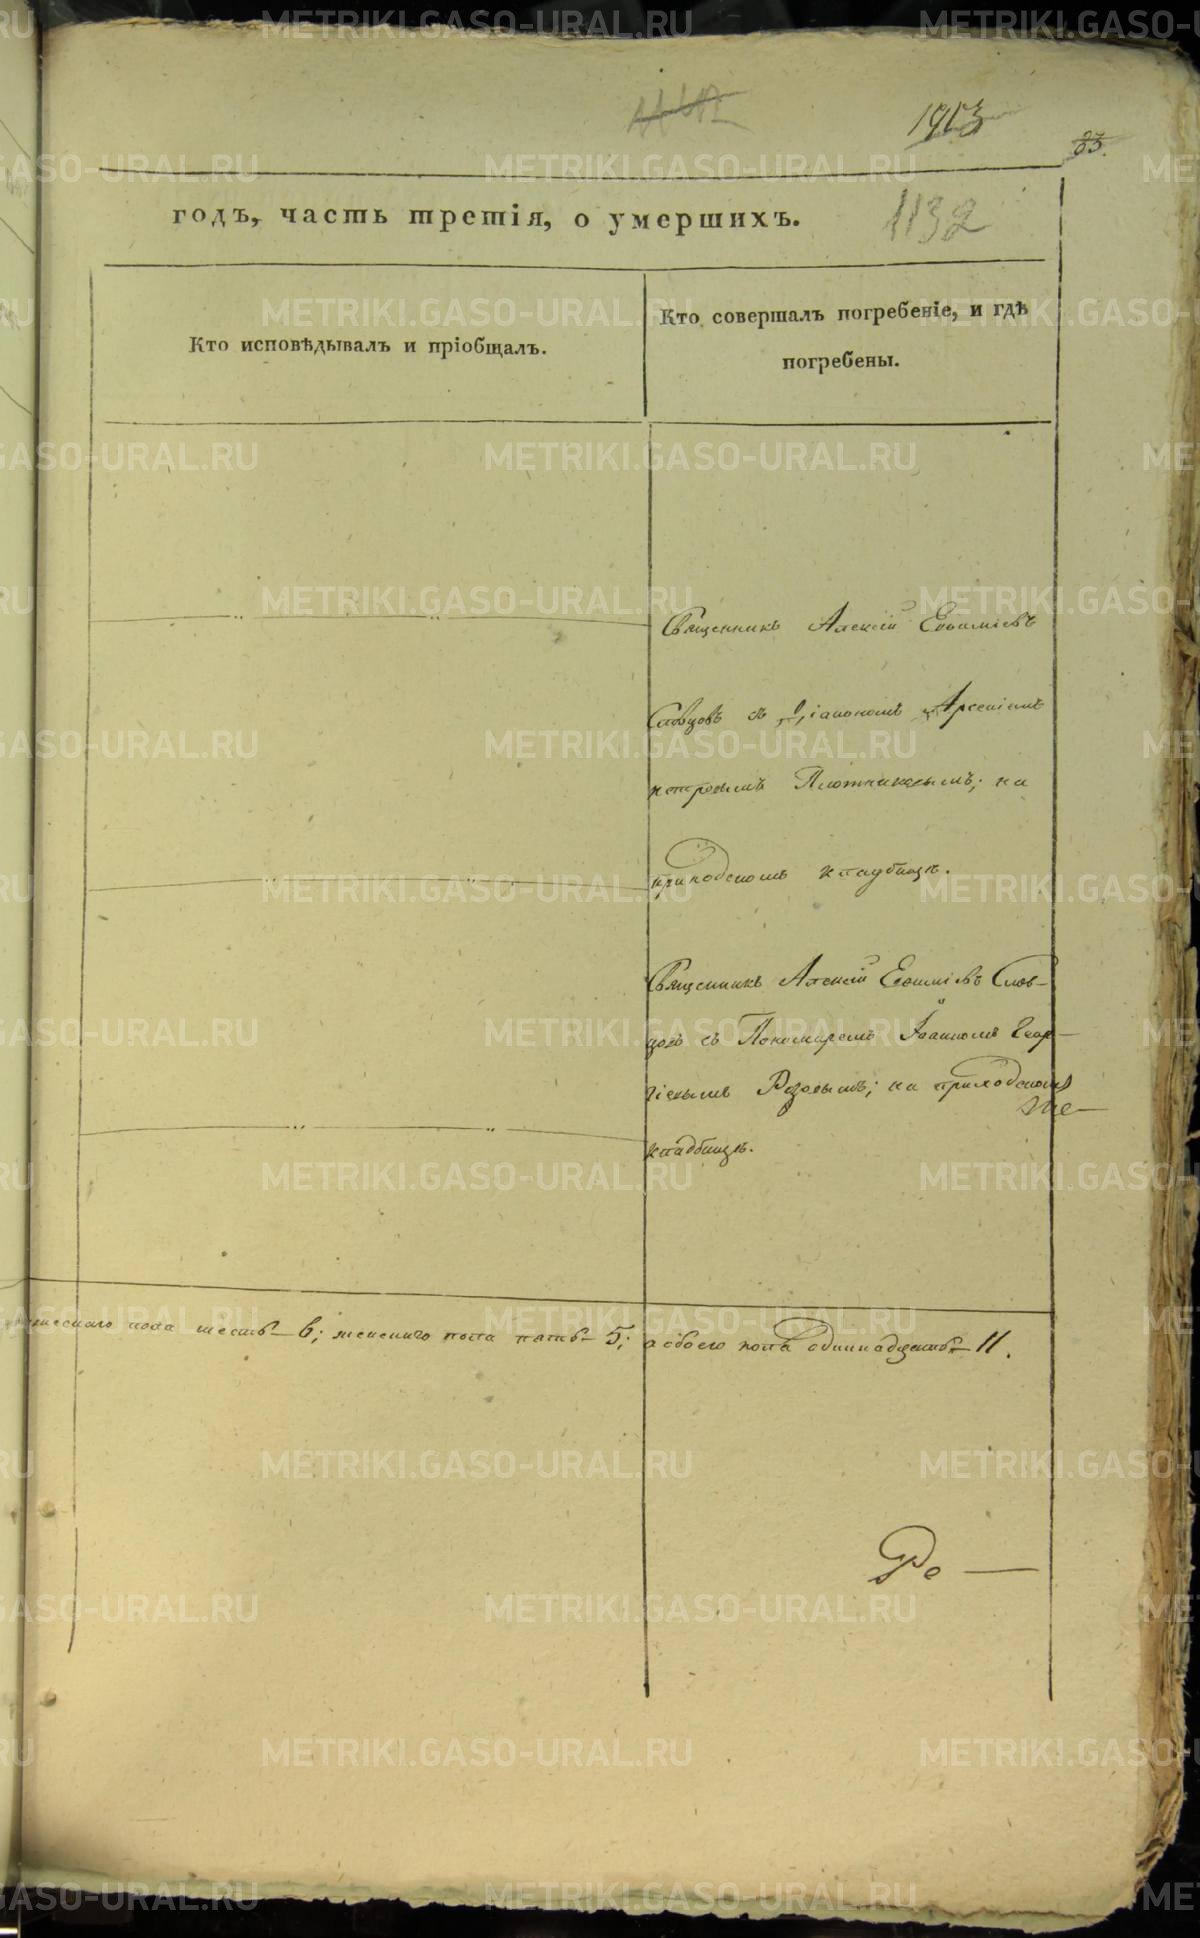 1913
83.
годъ, часть третія, о умершихъ.
1132
Кто исповѣдывалъ и пріобщалъ.
Кто совершалъ погребеніе, и гдѣ
погребены.
Священникъ Алексій Евѳиміевъ
Словцовъ съ Діакономъ Арсеніемъ
Петровымъ Плотниковымъ; на
приходскомъ кладбищѣ.
Священникъ Алексій Евѳиміевъ Слов-
цовъ съ Пономаремъ Іоанномъ Геор-
гіевымъ Розовымъ; на приходскомъ
же
кладбищѣ.
мужескаго пола шесть – 6; женскаго пола пять – 5; а обоего пола одиннадцать – 11.
Ро —
METRIKI.GASO-URAL.RU